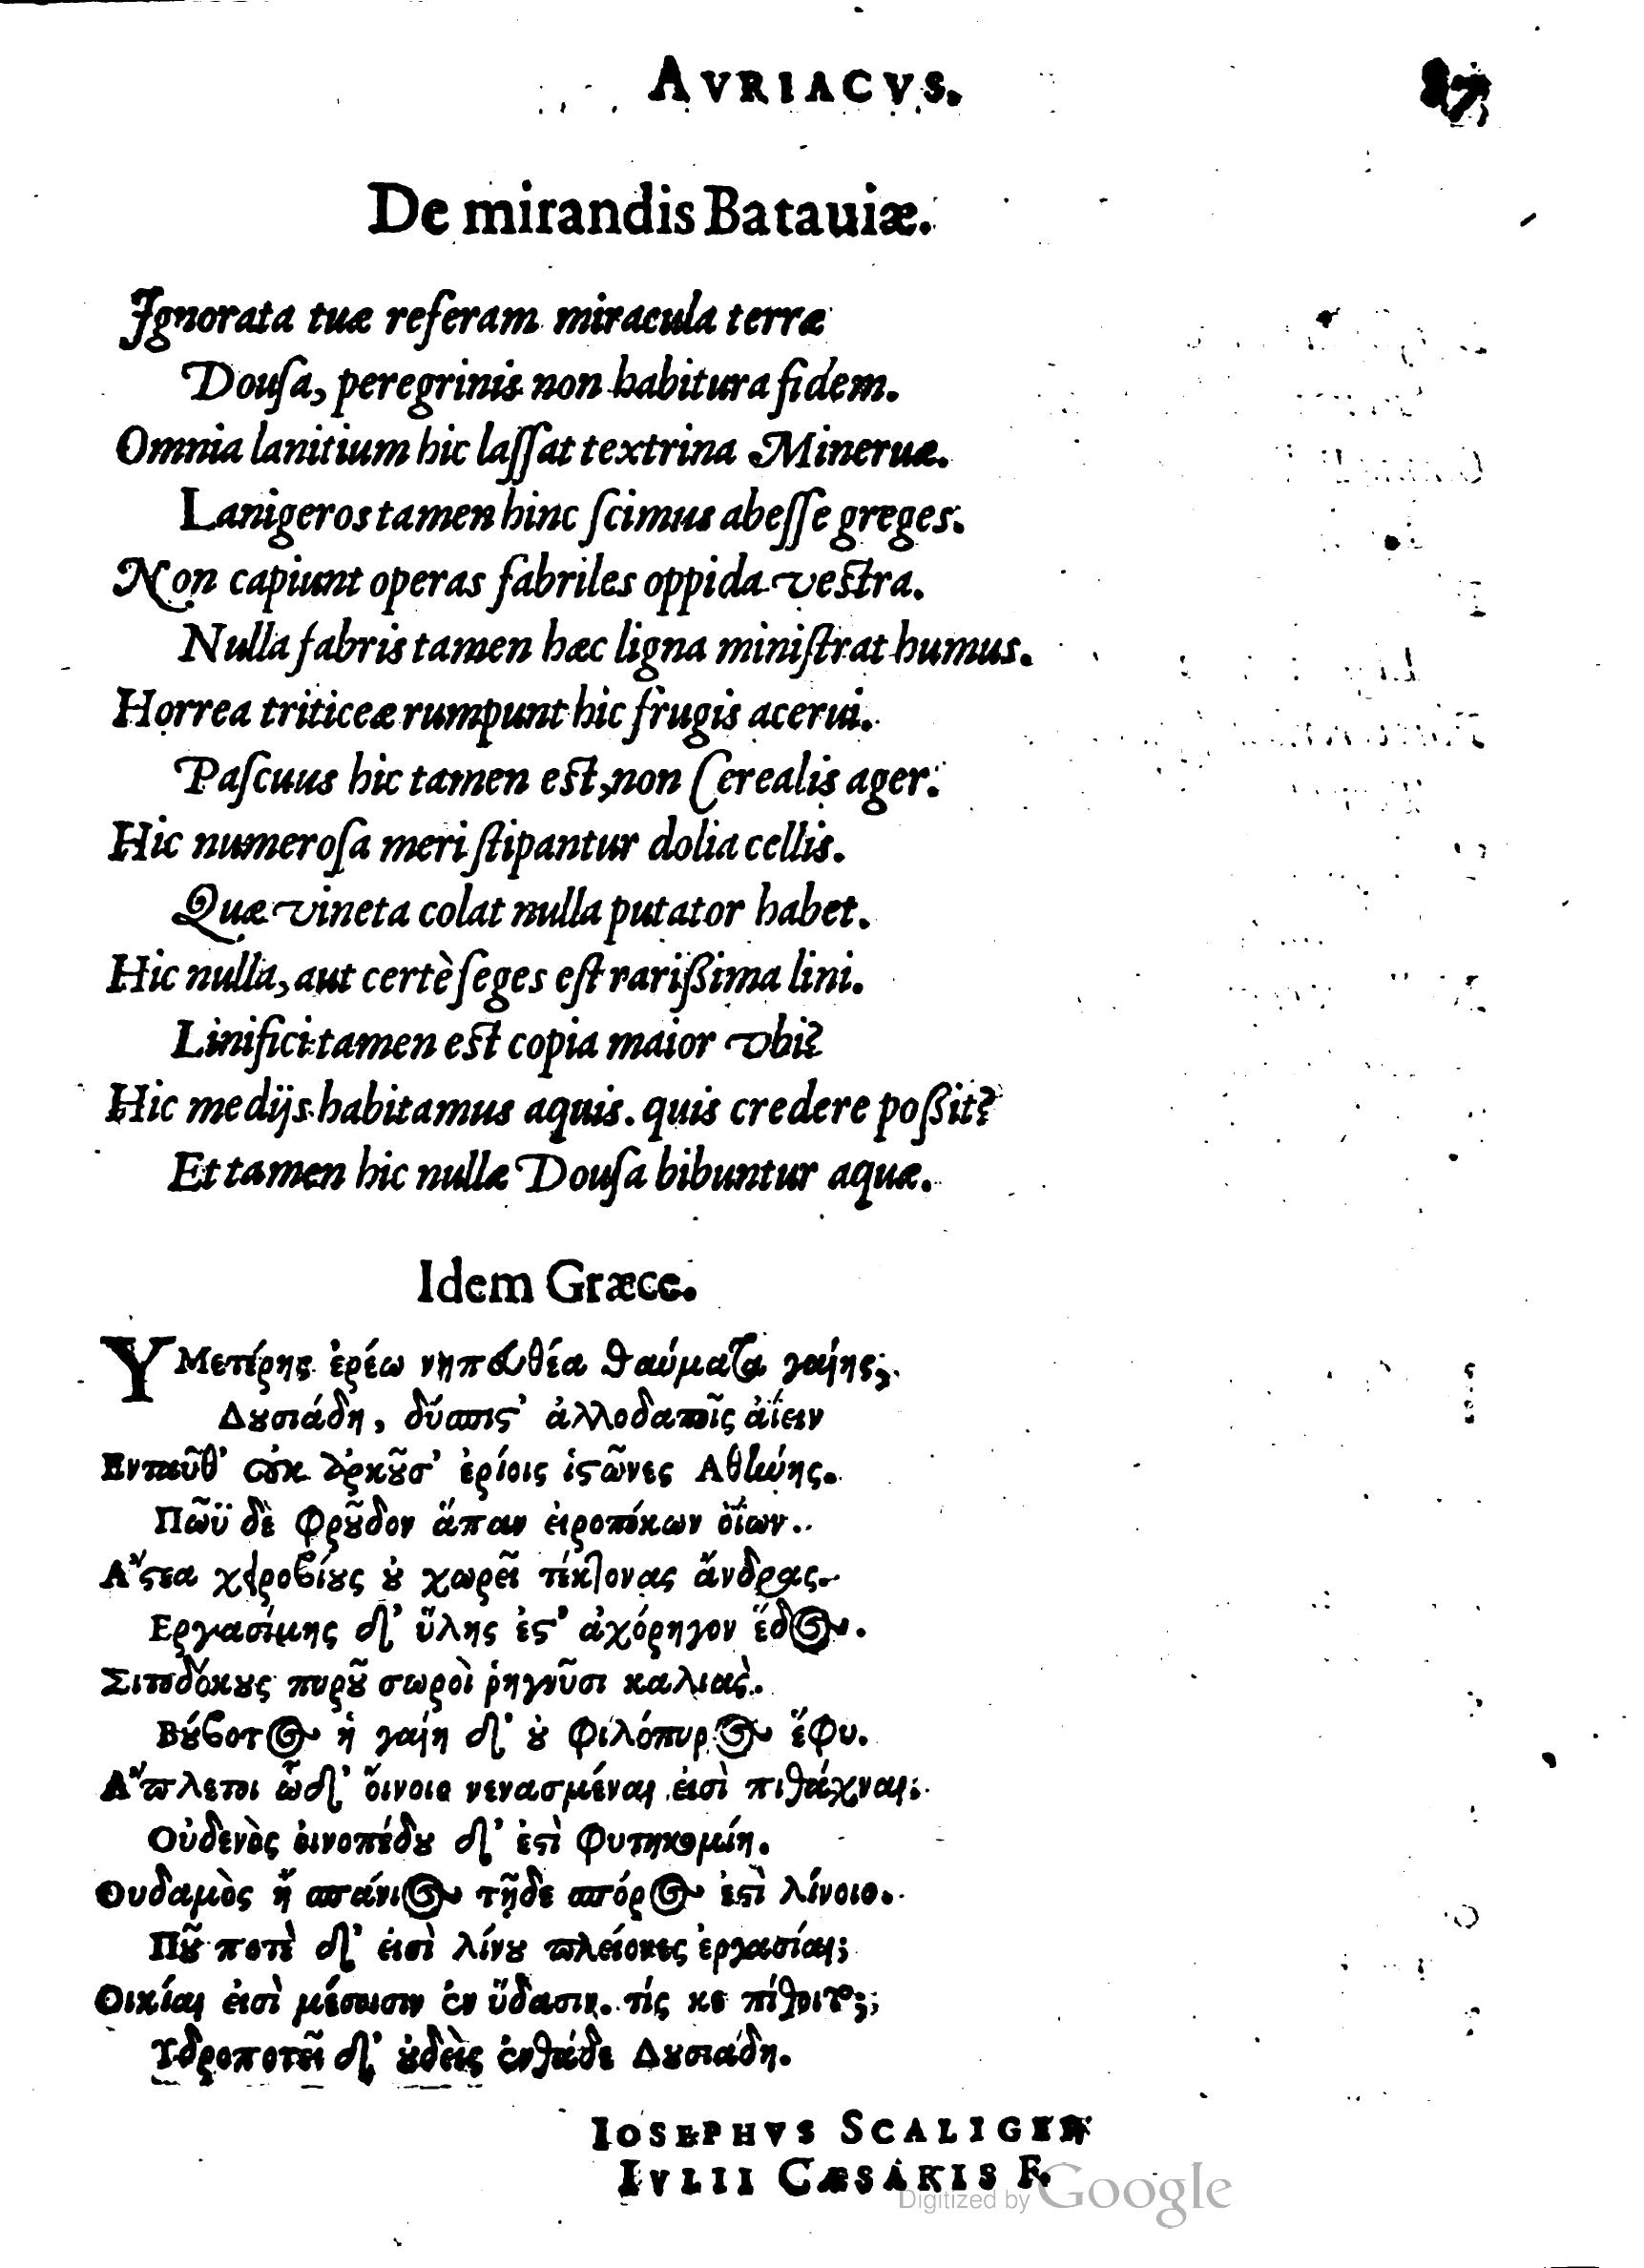 AVRIACVS.
87
De mirandis Batauiæ.
Ignorata tuæ referam miracula terræ
Douſa, peregrinis non habitura fidem.
Omnia lanitium hic laſſat textrina Mineruæ.
Lanigeros tamen hinc ſcimus abeſſe greges.
Non capiunt operas fabriles oppida veſtra.
Nulla fabris tamen hæc ligna miniſtrat humus.
Horrea triticeæ rumpunt hic frugis acerui.
Paſcuus hic tamen eſt, non Cerealis ager.
Hic numeroſa meri ſtipantur dolia cellis.
Quæ vineta colat nulla putator habet.
Hic nulla, aut certè ſeges eſt rarißima lini.
Linifici tamen eſt copia maior vbi?
Hic medijs habitamus aquis. quis credere poßit?
Et tamen hic nullæ Douſa bibuntur aquæ.
Idem Græce.
ΥΜετέρης ἐρέω νηπευθέα θαύματα γαίης,
Δουσιάδη, δύσπιστ' ἀλλοδαποῖς ἀΐειν
Ενταῦθ' οὐκ ἀρκοῦσ' ἐρίοις ἱστῶνες Αθηνής.
Πῶϋ δὲ φροῦδον ἅπαν εἰροπόκων ὀΐων.
Α῎στεα χειροβίους οὐ χωρεῖ τέκτονας ἄνδρας.
Εργασίμης δ' ὕλης ἐστ' ἀχόρηγον ἕδος.
Σιτοδόκους πυροῦ σωροὶ ῥηγνῦσι καλιας.
Βούβοτος ἡ γαίη δ' οὐ φιλόπυρος ἔφυ.
Α῎πλετοι ὧδ' ὄινοιο νενασμέναι εἰσὶ πιθάχναι.
Οὐδενὸς οἰνοπέδου δ' ἐστὶ φυτηκομίη.
Ουδαμὸς ἢ σπάνιος τῇδε σπόρος ἐστὶ λίνοιο.
Ποῦ ποτὲ δ' εἰσὶ λίνου πλείονες ἐργασίαι;
Οικίαι εἰσὶ μέσοισιν ἐν ὕδασιν. τίς κε πίθοιτο;
Υδροποτεῖ δ' οὐδεὶς ἐνθάδε Δουσιάδη.
IOSEPHVS SCALIGER
IVLII CÆSARIS F.
Digitized by Google